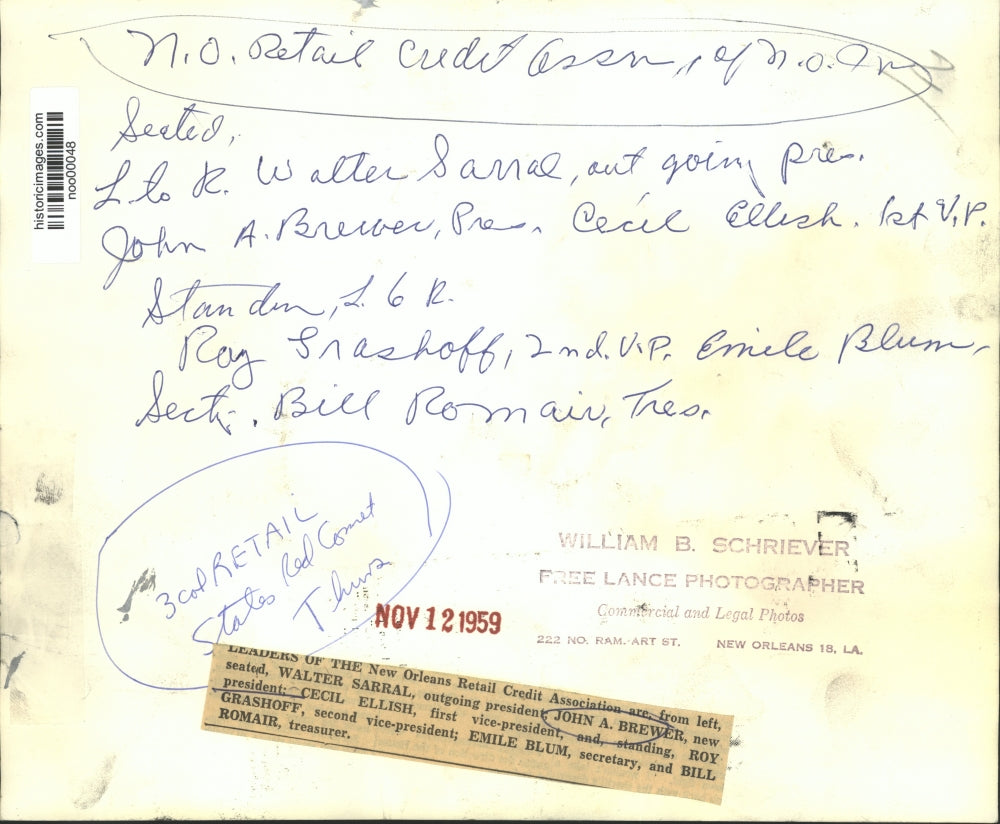 N.O. Retail Credit Assn, of N.O. Inc
historicimages.com
noo00048
Seated,
L to R. Walter Sarral, out going pres.
John A. Brewer, Pres. Cecil Ellish. 1st V.P.
Standin, L to R.
Roy Grashoff, 2nd. V.P. Emile Blum,
Sect. Bill Romair, Tres.
3 col RETAIL
States Red Comet
Thurs
NOV 12 1959
WILLIAM B. SCHRIEVER
FREE LANCE PHOTOGRAPHER
Commercial and Legal Photos
222 NO. RAM-ART ST. NEW ORLEANS 18, LA.
LEADERS OF THE New Orleans Retail Credit Association are, from left,
seated, WALTER SARRAL, outgoing president; JOHN A. BREWER, new
president; CECIL ELLISH, first vice-president, and, standing, ROY
GRASHOFF, second vice-president; EMILE BLUM, secretary, and BILL
ROMAIR, treasurer.